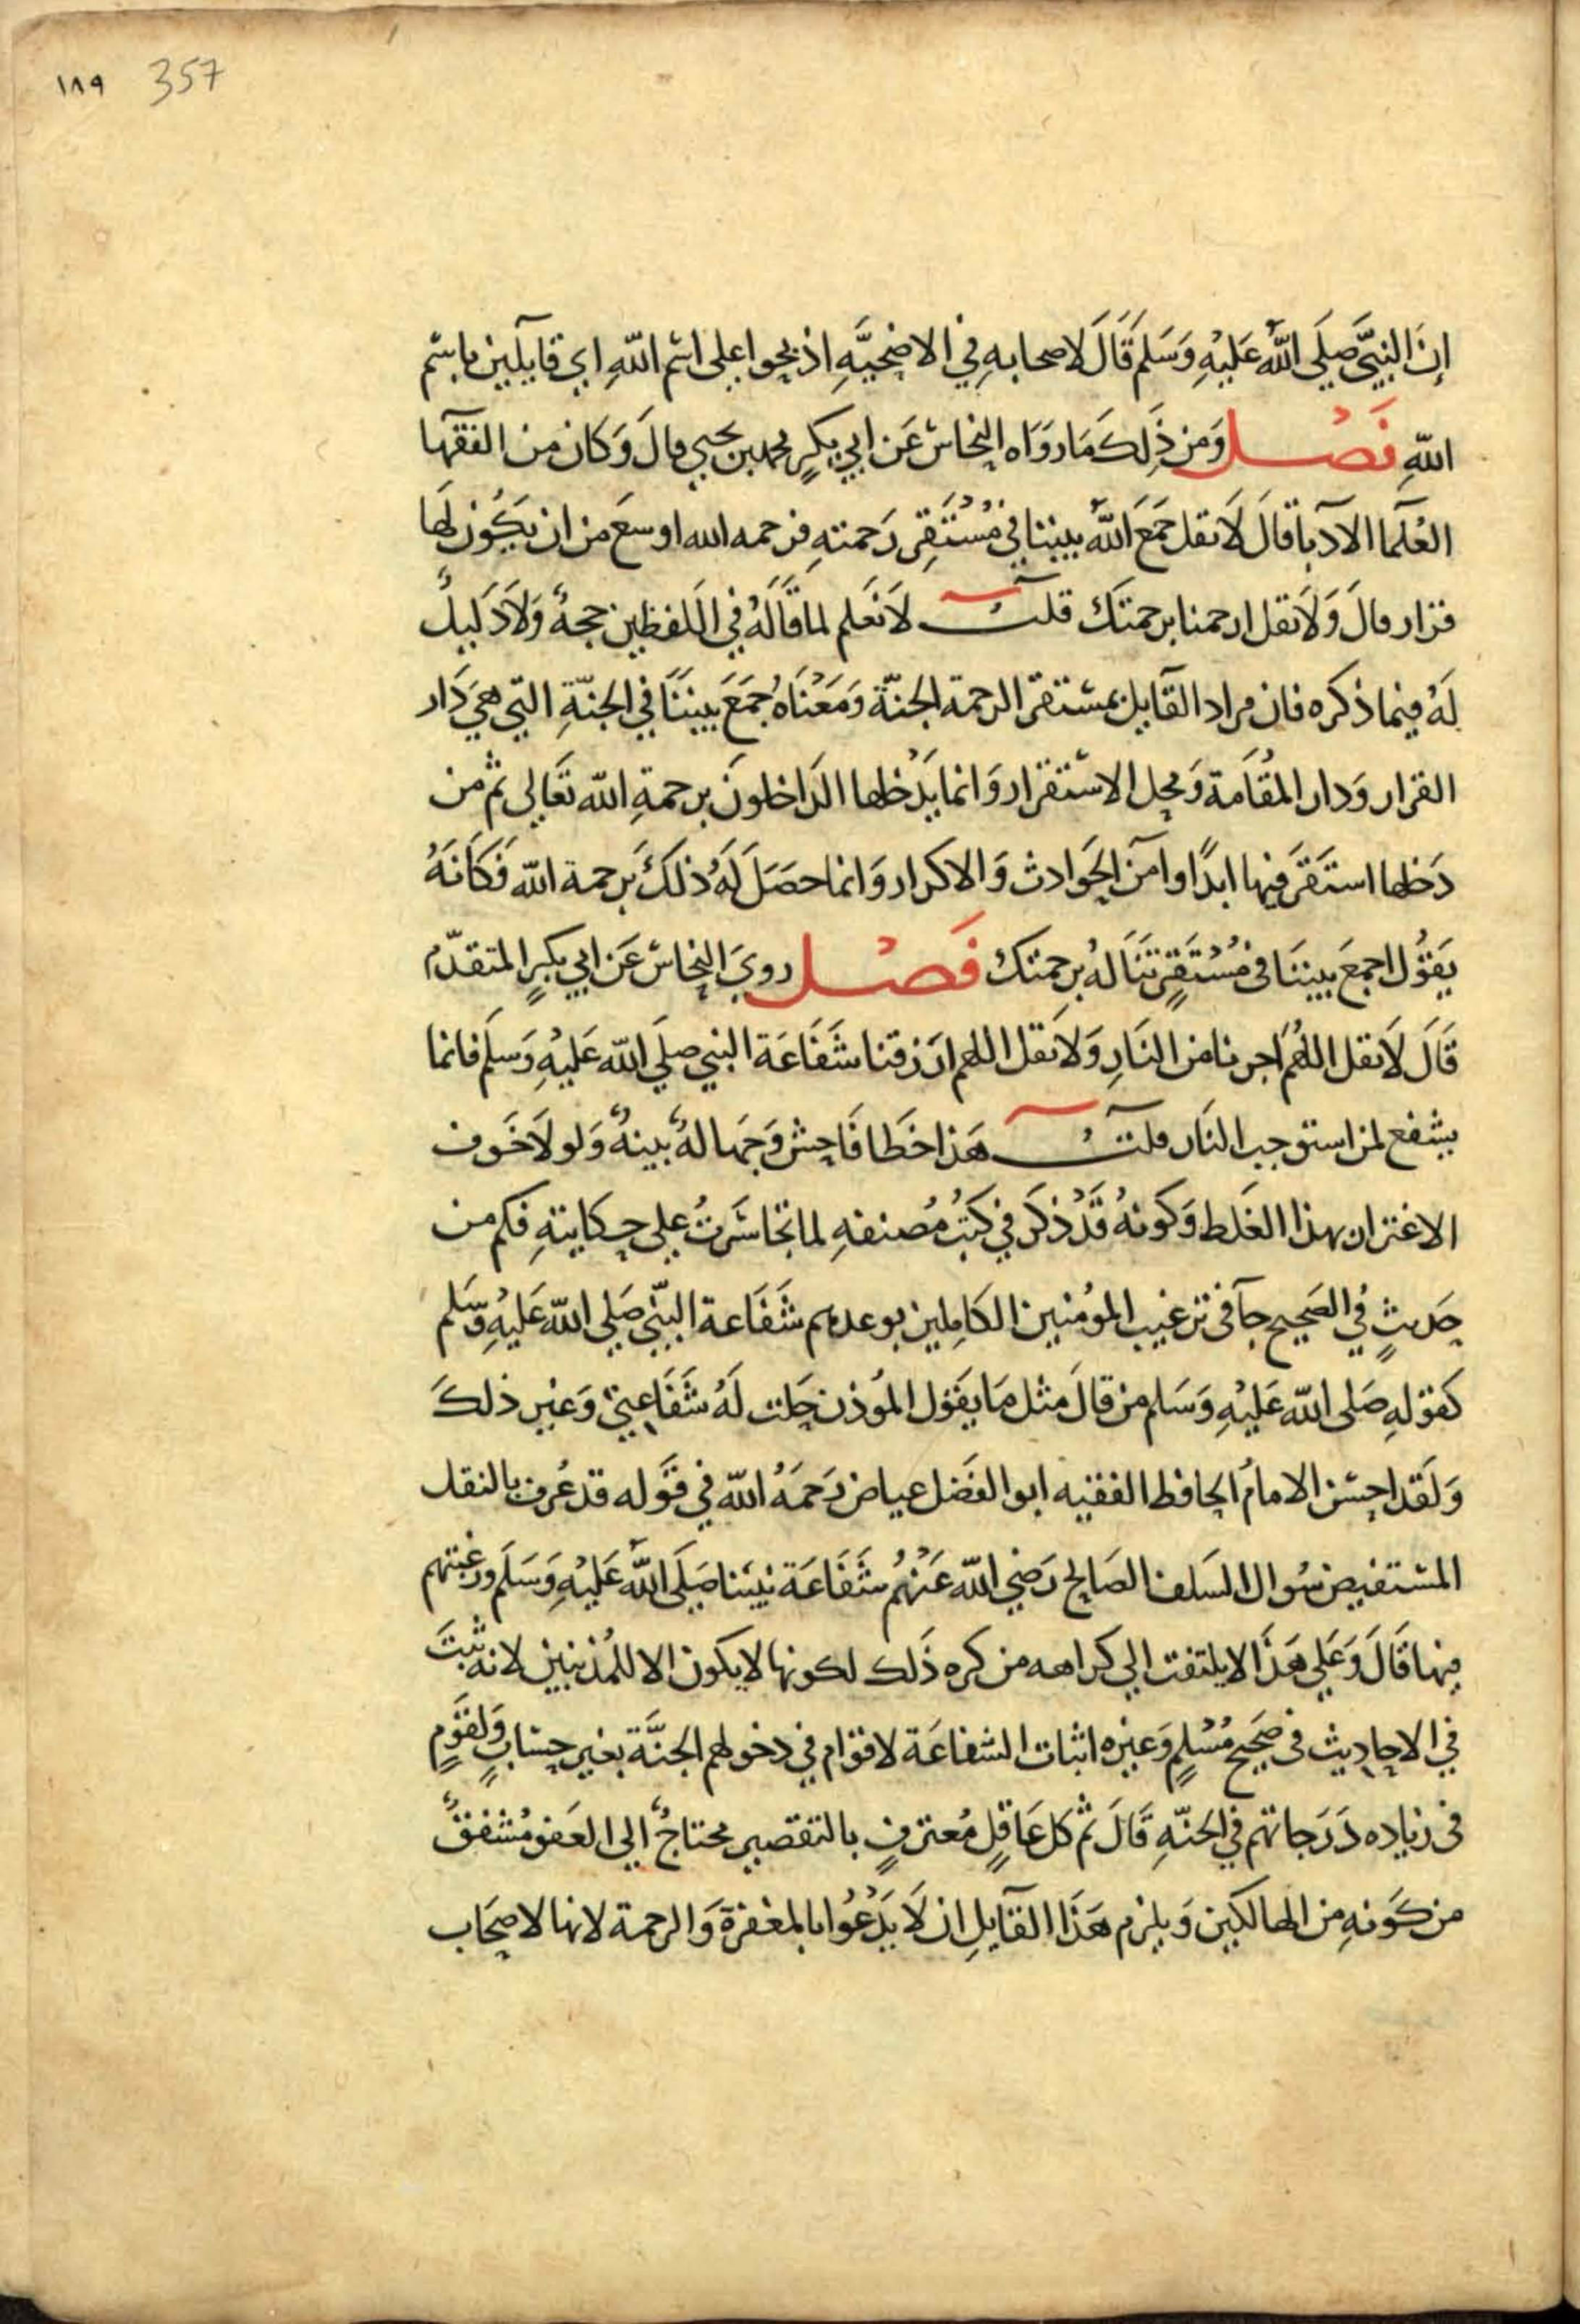 ١٨٩ 357
إن النبيَّ صَلَى اللّهُ عَليْهِ وَسَلم قَالَ لاصحابهِ في الاضحيَّهِ اذبحوا على اسْم اللّهِ اي قايلين باسْم
اللّهِ فَصْل وَمن ذَلِكَ مَا روَاه النحاسْ عَن ابي بكرٍ محمد بن يحيي قالَ وَكان من الفقها
العُلَما الادَبا قالَ لاَ تقل جَمَعَ اللّهُ بيننا في مُسْتَقِر رَحمتهِ فرحمه الله اوسعَ من ان يَكُون لَها
قرار قالَ وَلاَ تقل ارحمنا برحمتَك قلتُ لاَ نَعلم لما قَالَهُ في اللَفظين حجةً وَلاَ دَليلً
لَهُ فيما ذكره فان مراد القَايل بمسْتقر الرحمة الجنّة وَمَعْنَاهُ جَمَعَ بيننَا في الجنّةِ التي هيَ دَار
القرار وَدار المُقَامَة وَمحل الاسْتقرار وَانما يَدْخلها الدَاخلونَ برحمةِ اللّه تعَالي ثم من
دَخلها استَقَر فيها ابدًا وامنَ الحَوادث وَالاكدار وَانما حصَلَ لَهُ ذلكَ بَرحمة اللّه فَكَانَهُ
يَقُول اجمعَ بيننَا في مُسْتَقِرٍ نَنَالهُ برحمتكَ فَصْل رويَ النحاسْ عَن ابي بكرٍ المتقدّم
قَالَ لاَ تقل اللهُم اَجرنا من النَارِ وَلاَ تقل اللهم ارَزقنا شَفَاعَة النبي صلي اللّه عَليْهِ وَسلَم فانما
يشفع لمن استوجب النَار قلتُ هَذا خطَا فَاحِش وَجهَالهٌ بينهٌ وَلولاَ خَوف
الاغترار بهذا الغَلط وَكونهُ قَدْ ذكرَ في كتبُ مُصنفهِ لما تجَاسَرتُ عِلي حِكايتهِ فكم من
حَديثٍ في الصَحيح جآ في ترغيب المؤمنين الكَاملين بوعدهم شَفَاعة النبّي صَلي اللّه عَليْهِ وسَلم
كقولهِ صَلى اللّه عَليْهِ وَسَلم من قالَ مثل مَا يَقول المؤذن حَلت لَهُ شَفَاعتي وَغير ذلكَ
وَلَقد احسْن الامامُ الحافظ الفقيه ابو الفَضل عياض رَحمَهُ اللّه في قَوله قد عُرف بالنقل
المسْتفيض سُوال السَلف الصَالح رَضي اللّه عَنْهُم شَفَاعَة نبينَا صَلَى اللّهُ عَليْهِ وَسَلَم ورغبتهم
فيها قَالَ وَعَلي هَذا لا يلتفت الي كراهه من كره ذَلك لكونها لا يكون الا للمُذنبين لانه ثبتَ
في الاحاديث في صَحيح مُسْلمٍ وَغيره اثبات الشفاعَة لاقوام في دخولهم الجنَّة بغير حسَابٍ ولقَومٍ
في زياده دَرَجاتهم في الجَنّهِ قَالَ ثم كل عَاقِلٍ مُعترفٍ بالتقصير محتاجٌ الي العَفو مُشفقٌ
من كَونهِ من الهالكين وَيلزم هَذا القَايل ان لاَ يَدْعُوا بالمغفرة وَالرحمة لانها لاصحَاب